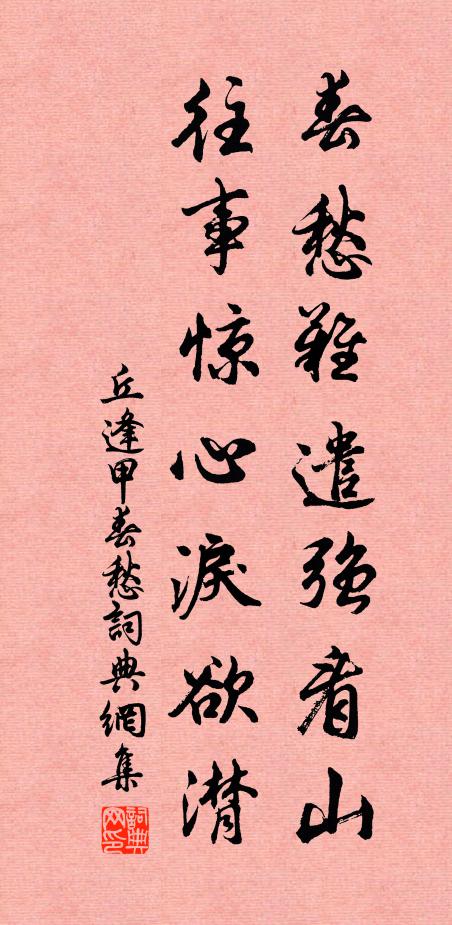 春愁難遣強看山
往事惊心淚欲潸
丘逢甲春愁詞典網集
詞典网印